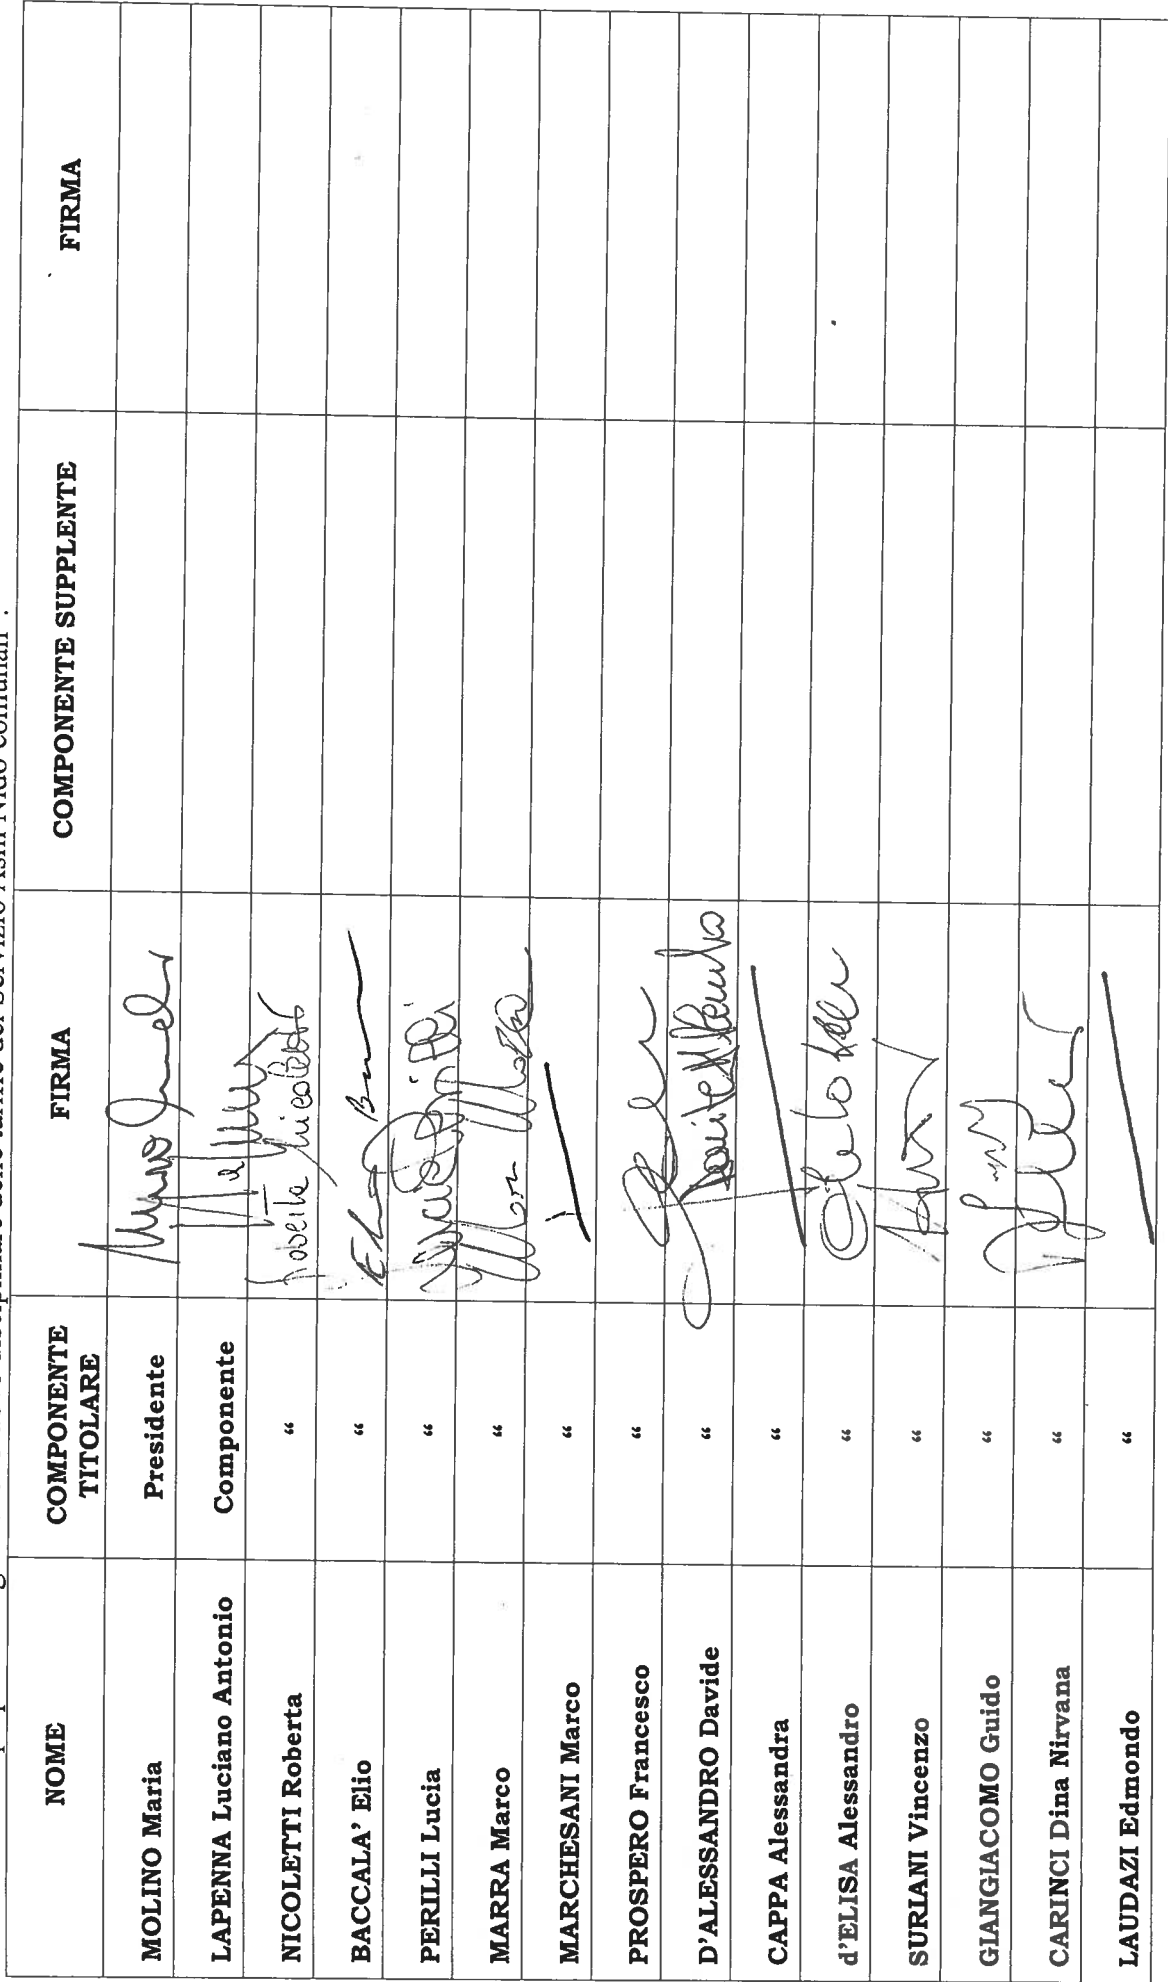 delle tariffe del Servizio Asili Nido Comunali".
NOME COMPONENTE TITOLARE FIRMA COMPONENTE SUPPLENTE FIRMA
MOLINO Maria Presidente
LAPENNA Luciano Antonio Componente
NICOLETTI Roberta " Roberta Nicoletti
BACCALA' Elio "
PERILLI Lucia " Lucia Perilli
MARRA Marco "
MARCHESANI Marco "
PROSPERO Francesco "
D'ALESSANDRO Davide "
CAPPA Alessandra "
d'ELISA Alessandro "
SURIANI Vincenzo "
GIANGIACOMO Guido "
CARINCI Dina Nirvana "
LAUDAZI Edmondo "